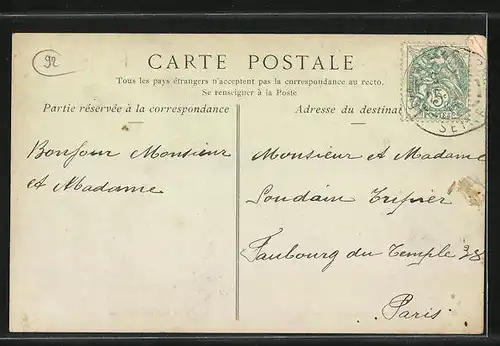 92
CARTE POSTALE
Tous les pays étrangers n'acceptent pas la correspondance au recto.
Se renseigner à la Poste
Partie réservée à la correspondance
Adresse du destinat
5c
SEINE
Bonjour Monsieur
et Madame
Monsieur et Madame
Soudain Tripier
Faubourg du Temple 38
Paris.